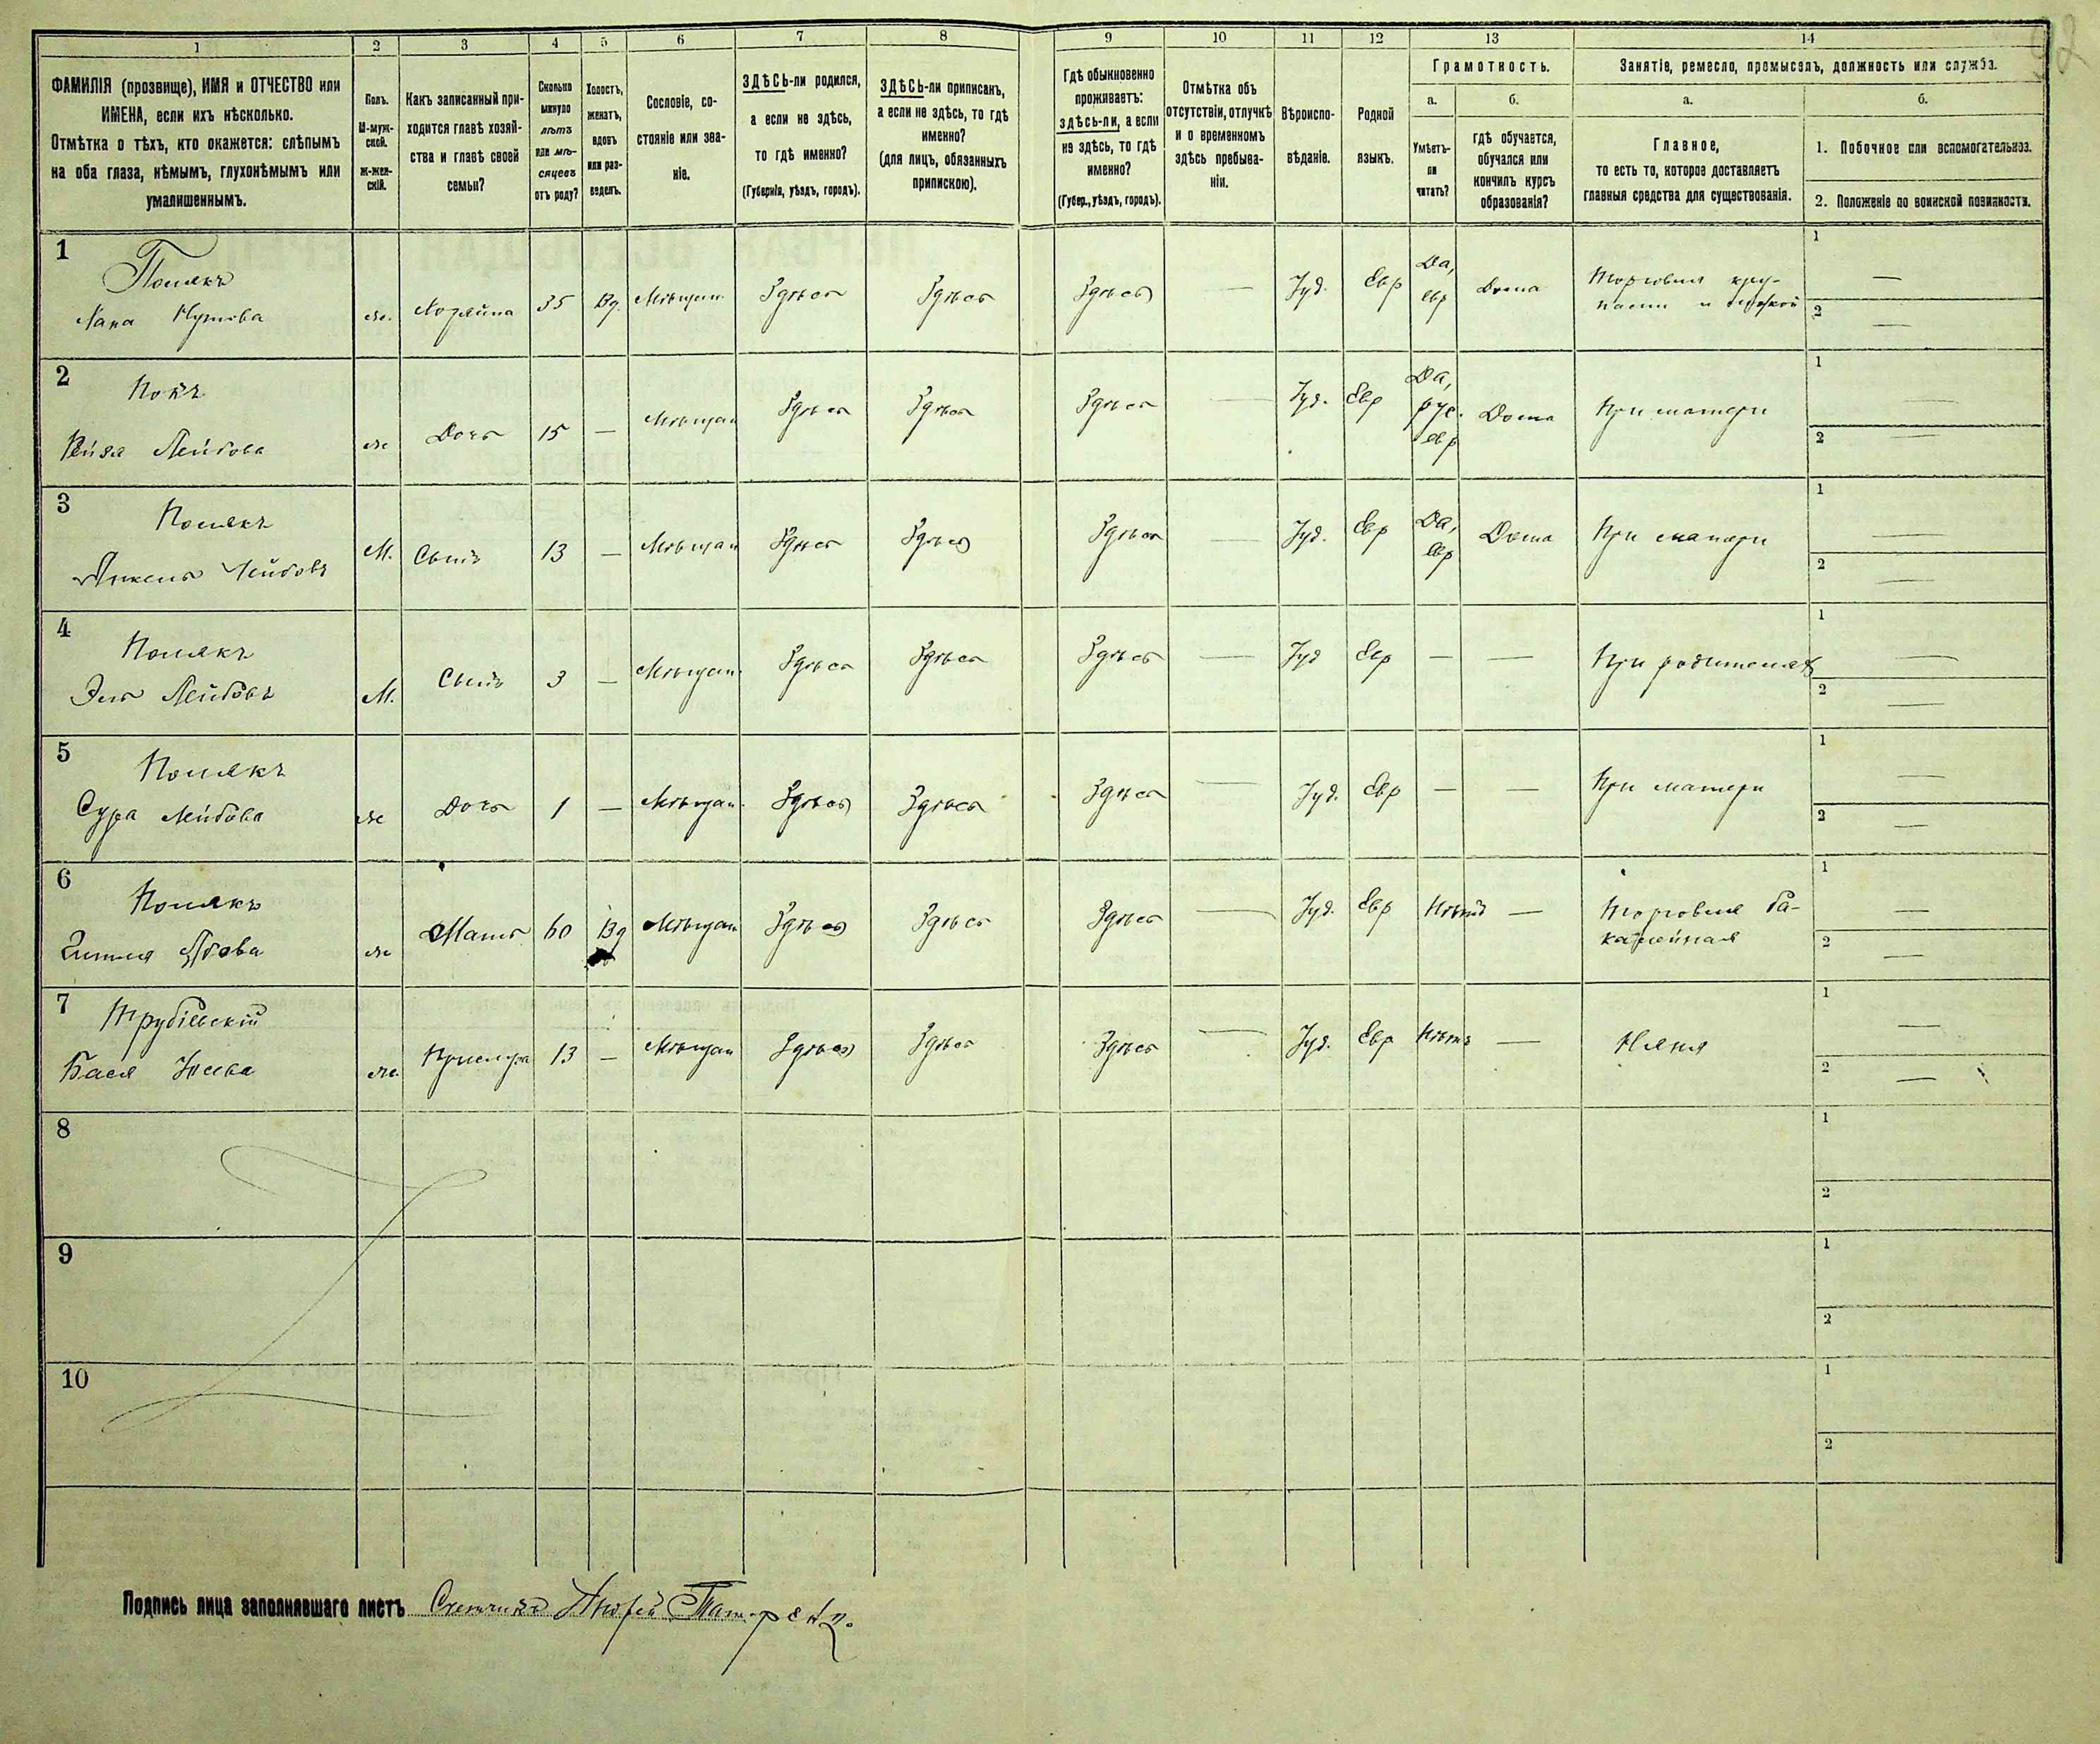 92
1 2 3 4 5 6 7 8 9 10 11 12 13 14
ФАМИЛІЯ (прозвище), ИМЯ и ОТЧЕСТВО или
ИМЕНА, если ихъ нѣсколько.
Отмѣтка о тѣхъ, кто окажется: слѣпымъ
на оба глаза, нѣмымъ, глухонѣмымъ или
умалишеннымъ.
Полъ.
М-муж-
ской.
Ж-жен-
скій.
Какъ записанный при-
ходится главѣ хозяй-
ства и главѣ своей
семьи?
Сколько
минуло
лѣтъ
или мѣ-
сяцевъ
отъ роду?
Холостъ,
женатъ,
вдовъ
или раз-
веденъ.
Сословіе, со-
стояніе или зва-
ніе.
ЗДѢСЬ-ли родился,
а если не здѣсь,
то гдѣ именно?
(Губернія, уѣздъ, городъ).
ЗДѢСЬ-ли приписанъ,
а если не здѣсь, то гдѣ
именно?
(для лицъ, обязанныхъ
припискою).
Гдѣ обыкновенно
проживаетъ:
здѣсь-ли, а если
не здѣсь, то гдѣ
именно?
(Губер., уѣздъ, городъ).
Отмѣтка объ
отсутствіи, отлучкѣ
и о временномъ
здѣсь пребыва-
ніи.
Вѣроиспо-
вѣданіе.
Родной
языкъ.
Грамотность.
а.
Умѣетъ-
ли
читать?
б.
гдѣ обучается,
обучался или
кончилъ курсъ
образованія?
Занятіе, ремесло, промыселъ, должность или служба.
а.
Главное,
то есть то, которое доставляетъ
главныя средства для существованія.
б.
1. Побочное или вспомогательное.
2. Положеніе по воинской повинности.
1
Полякъ
Хана
ж. Хозяйка 35 Вд. Мѣщан. Здѣсь Здѣсь Здѣсь — Іуд. Евр Да, евр Дома Торговля кру-
пами и мукой
1 —
2 —
2
Лейбова
ж Дочь 15 — Мѣщан Здѣсь Здѣсь Здѣсь — Іуд. Евр Да, рус. евр Дома При матери
1 —
2 —
3
Полякъ
Лейбовъ
М. Сынъ 13 — Мѣщан Здѣсь Здѣсь Здѣсь — Іуд. Евр Да, евр Дома При матери
1 —
2 —
4
Полякъ
Эль Лейбовъ
М. Сынъ 3 — Мѣщан. Здѣсь Здѣсь Здѣсь — Іуд Евр — — При родителяхъ
1 —
2 —
5
Полякъ
Сура Лейбова
ж Дочь 1 — Мѣщан. Здѣсь Здѣсь Здѣсь — Іуд. Евр — — При матери
1 —
2 —
6
Полякъ
ж Мать 60 Вд Мѣщан Здѣсь Здѣсь Здѣсь — Іуд. Евр Нѣтъ — Торговля ба-
калейная
1 —
2 —
7
Бася
ж. Прислуга 13 — Мѣщан Здѣсь Здѣсь Здѣсь — Іуд. Евр Нѣтъ — Няня
1 —
2 —
8
1
2
9
1
2
10
1
2
Подпись лица заполнявшаго листъ Счетчикъ Андрей